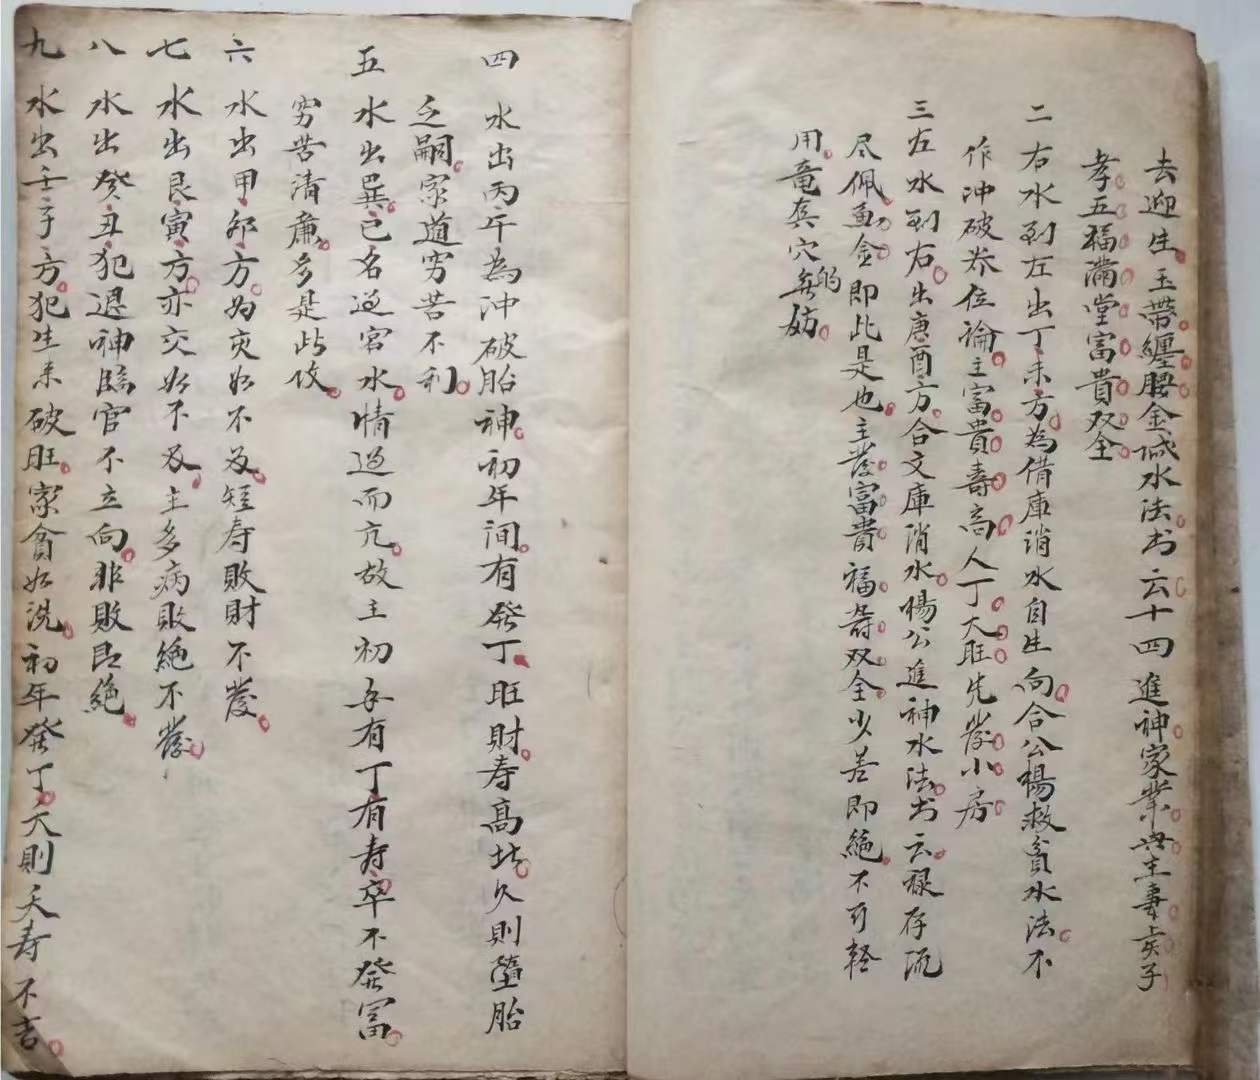 去迎生。玉帶纏腰金城水法。书云十四進神家業興。主妻贤子
孝。五福滿堂。富貴双全。
二 右水到左出丁未方。為借庫消水自生向。合公楊救貧水法。不
作冲破养位論。主富貴壽高。人丁大旺。先發小房。
三 左水到右。出庚酉方。合文庫消水。楊公進神水法。书云。禄存流
尽佩魚金。即此是也。主發富貴。福壽双全。少差即絶。不可輕
用。竜真穴的無妨。
四 水出丙午為冲破胎神。初年间。有發丁。旺財。寿高。廿久則墮胎
乏嗣。家道穷苦不利。
五 水出巽。巳名过宫水。情过而亢。故主初年有丁有寿。卒不發富。
穷苦清廉。多是此位。
六 水出甲卯方。为交如不及。短寿敗財不發。
七 水出艮寅方。亦交如不及。主多病敗絶不發。
八 水出癸丑犯退神臨官不立向。非敗即絶。
九 水出壬子方。犯生来破旺。家貧如洗。初年發丁。大則夭寿不吉。